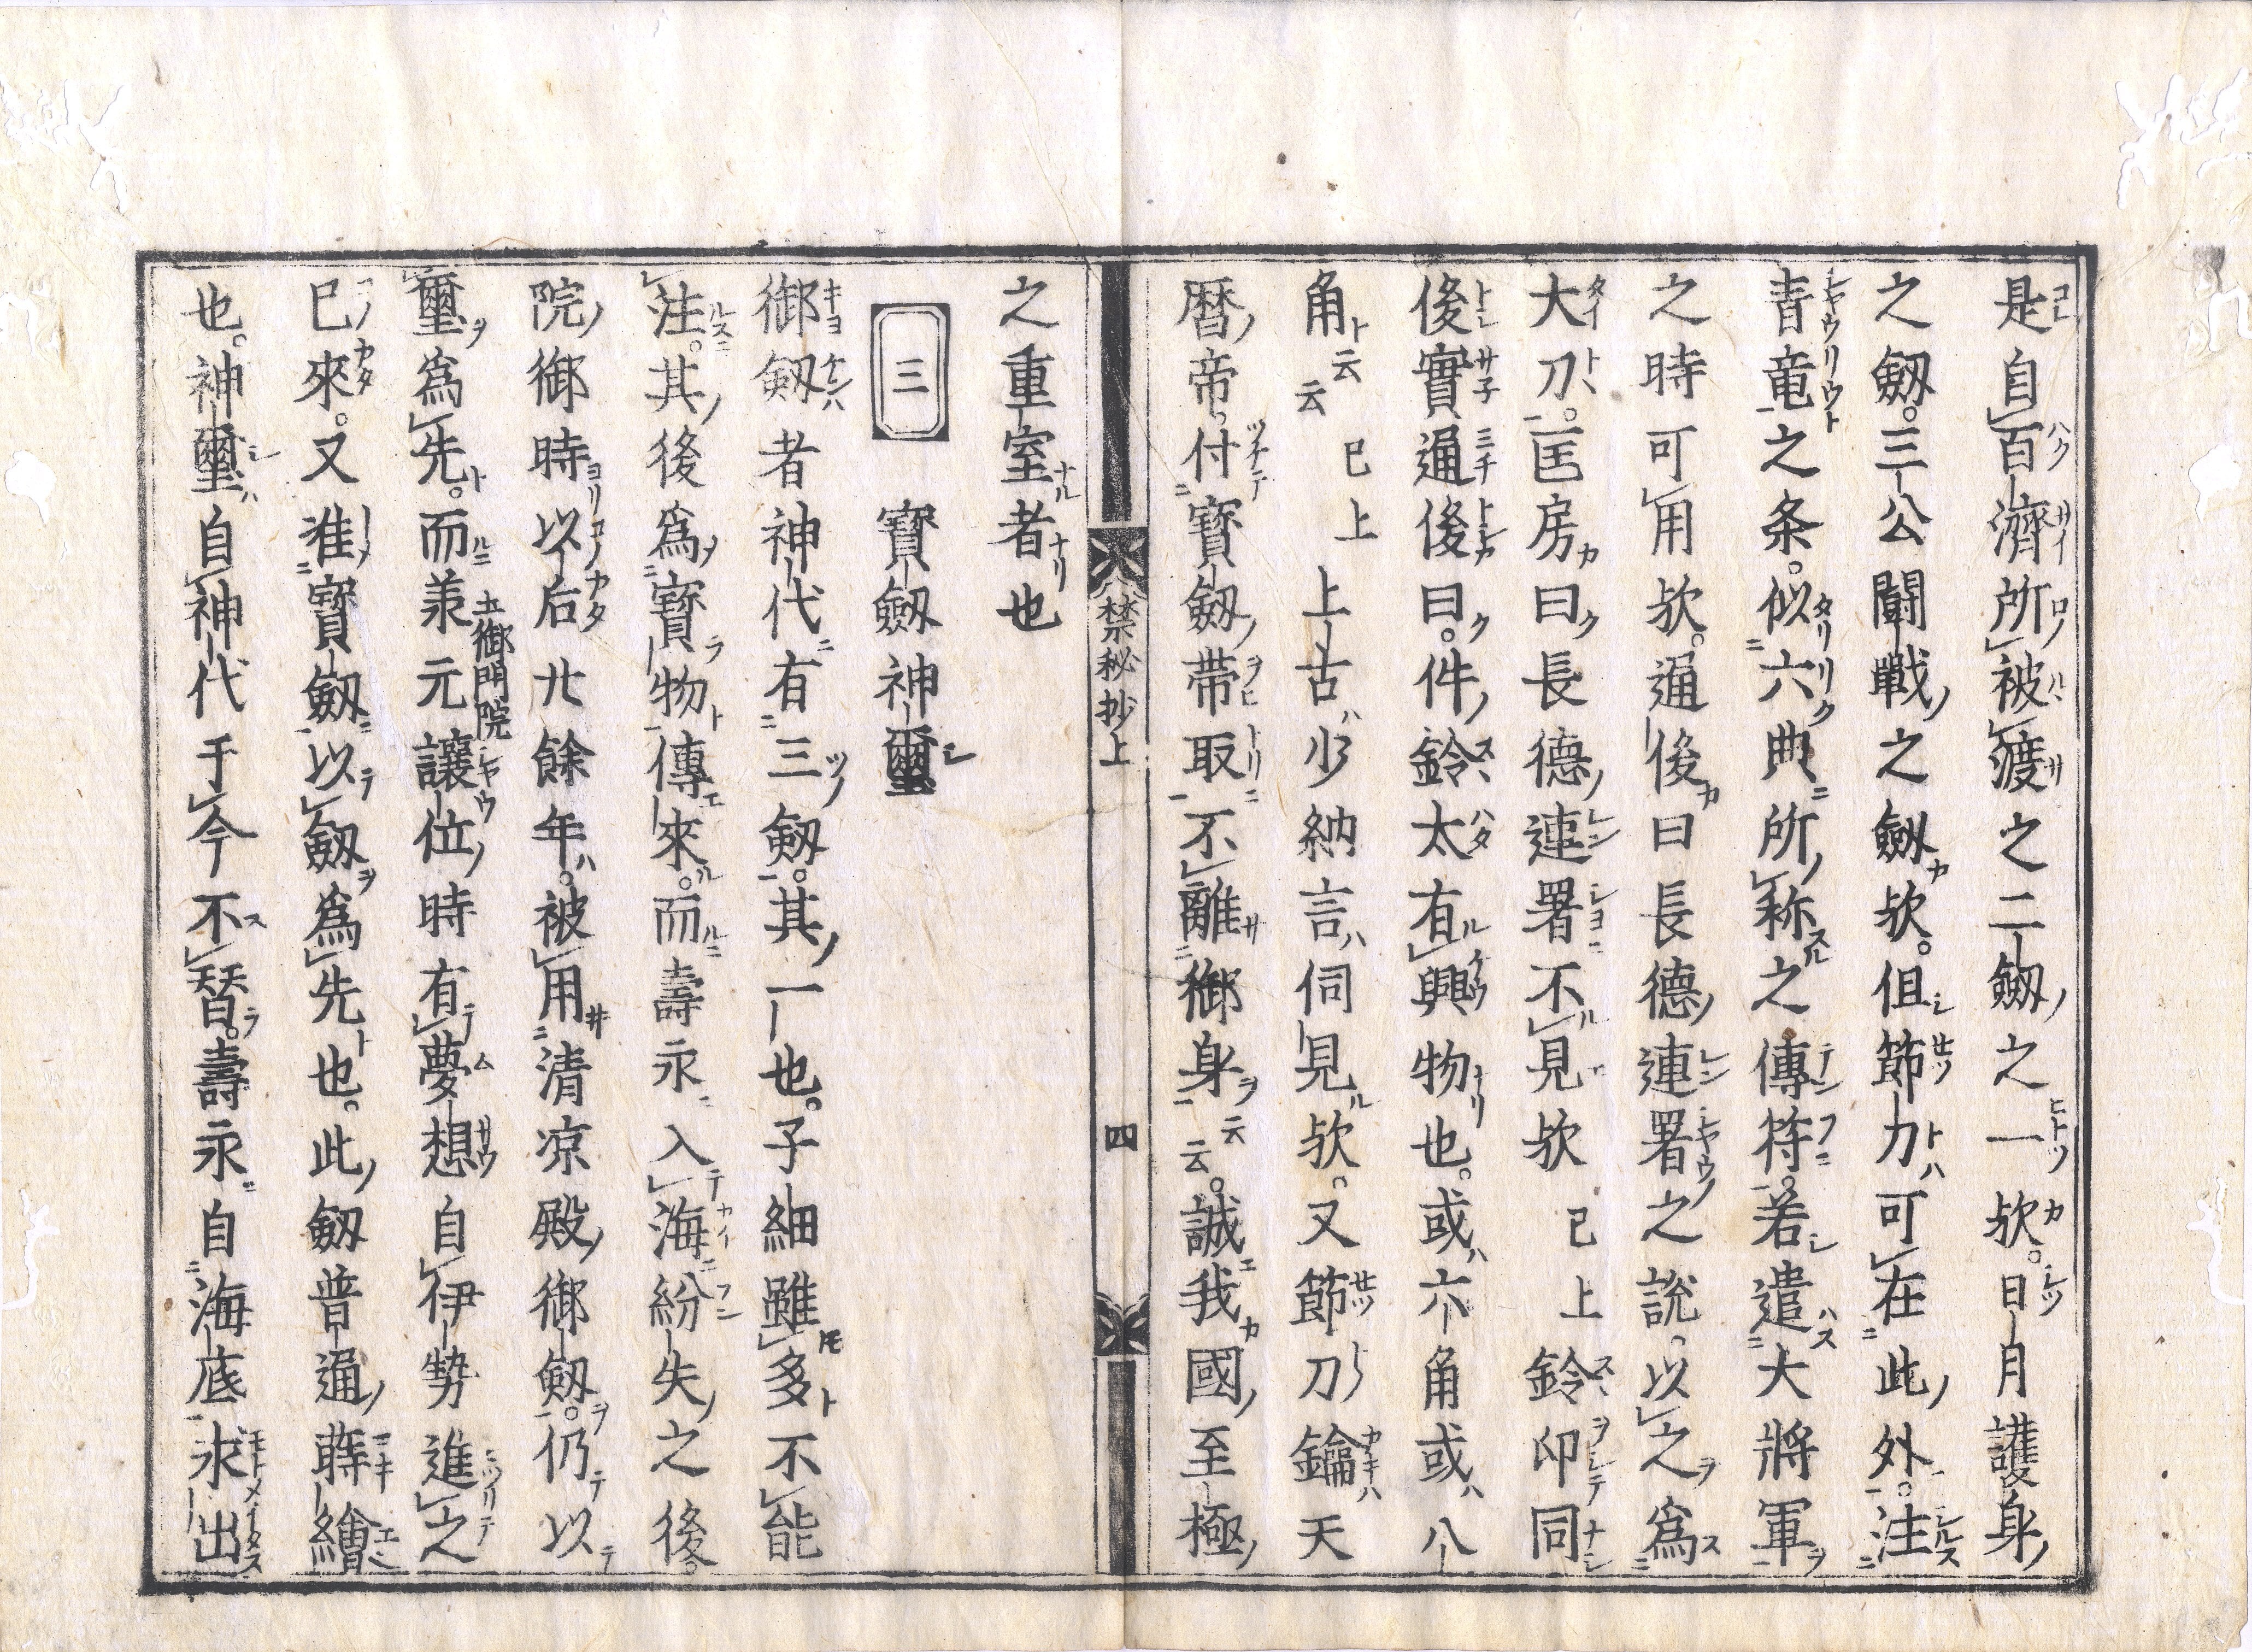 是自百濟所被渡之二劔之一欤。日月護身
之劔。三公闘戦之劔欤。但節刀可在此外。注
青竜之条。似六典所称之傳符。若遣大將軍
之時可用欤。通後曰長德連署之説。以之爲
大刀。匡房曰長德連署不見欤 已上 鈴印同
後實通後曰。件鈴太有興物也。或六角或八
角云云 已上 上古少納言伺見欤。又節刀鑰天
暦帝。付寳劔帯取不離御身云云。誠我國至極
禁秘抄上 四
之重室者也
三 寳劔神璽
御劔者神代有三劔。其一也。子細雖多不能
注。其後爲寳物傳來。而壽永入海紛失之後。
院御時以后廿餘年。被用清凉殿御劔。仍以
璽爲先。而兼元讓位時有夢想自伊勢進之
土御門院
已來。又准寳劔以劔爲先也。此劔普通蒔繪
也。神璽自神代于今不替。壽永自海底求出